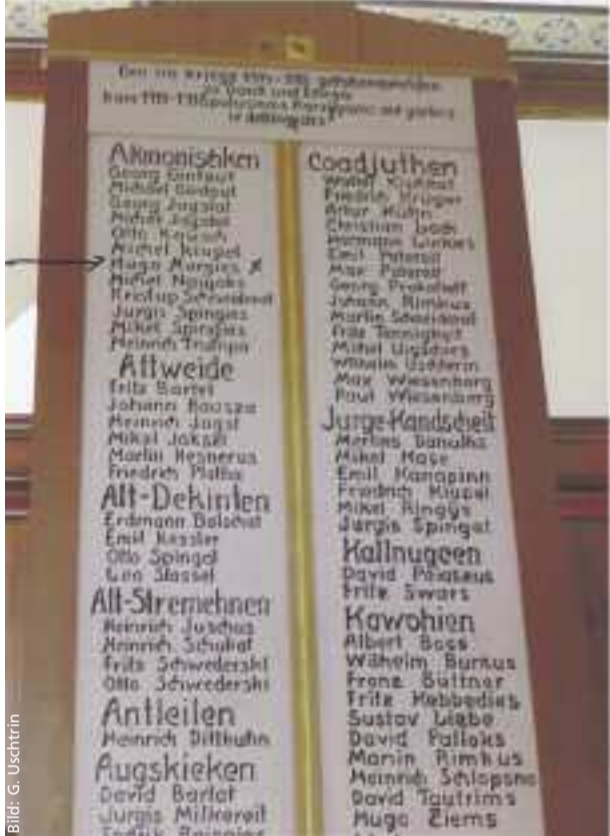 Den im Kriege 1914-1918
zu Dank und Ehren
kare 1914-1918
Akmonishken
Georg Gintaut
Michael Gintaut
Georg Jagstat
Michel Jagstat
Otto
Michel Kiupel
Hugo Margies x
Michel Naujoks
Kristup Schneidereit
Jurgis Spingies
Mikel Spingies
Heinrich Trumpa
Attweide
Fritz Bartel
Johann Kausza
Heinrich Jagst
Mikel Joksel
Martin Mesnerus
Friedrich Platha
Alt-Dekinten
Erdmann Balschat
Emil Kessler
Otto Spingat
Leo Stassel
Alt-Stremehnen
Heinrich Juschas
Heinrich Schukat
Fritz Schwederski
Otto Schwederski
Antleilen
Heinrich Dittkuhn
Augskieken
David Bartat
Jurgis Milkereit
Coadjuthen
Friedrich Krüger
Artur Kühn
Christian
Hermann
Emil Petereit
Max Petereit
Georg Preikschatt
Johann Rimkus
Martin Schneidereit
Fritz Tennigkeit
Mikel
Wilhelm Uschtrin
Max Wiesenberg
Paul Wiesenberg
Jurge-Kandscheit
Mertins Danulks
Mikel Kose
Emil Kanapinn
Friedrich Kiupel
Mikel Ringys
Jurgis Spingat
Kallnugeen
David
Fritz Swars
Kawohlen
Albert Boss
Wilhelm Burnus
Franz Büttner
Fritz Kebbedies
Gustav Liebe
David Palloks
Martin Rimkus
Heinrich Schlopsna
David Tautrims
Hugo Ziems
Bild: G. Uschtrin